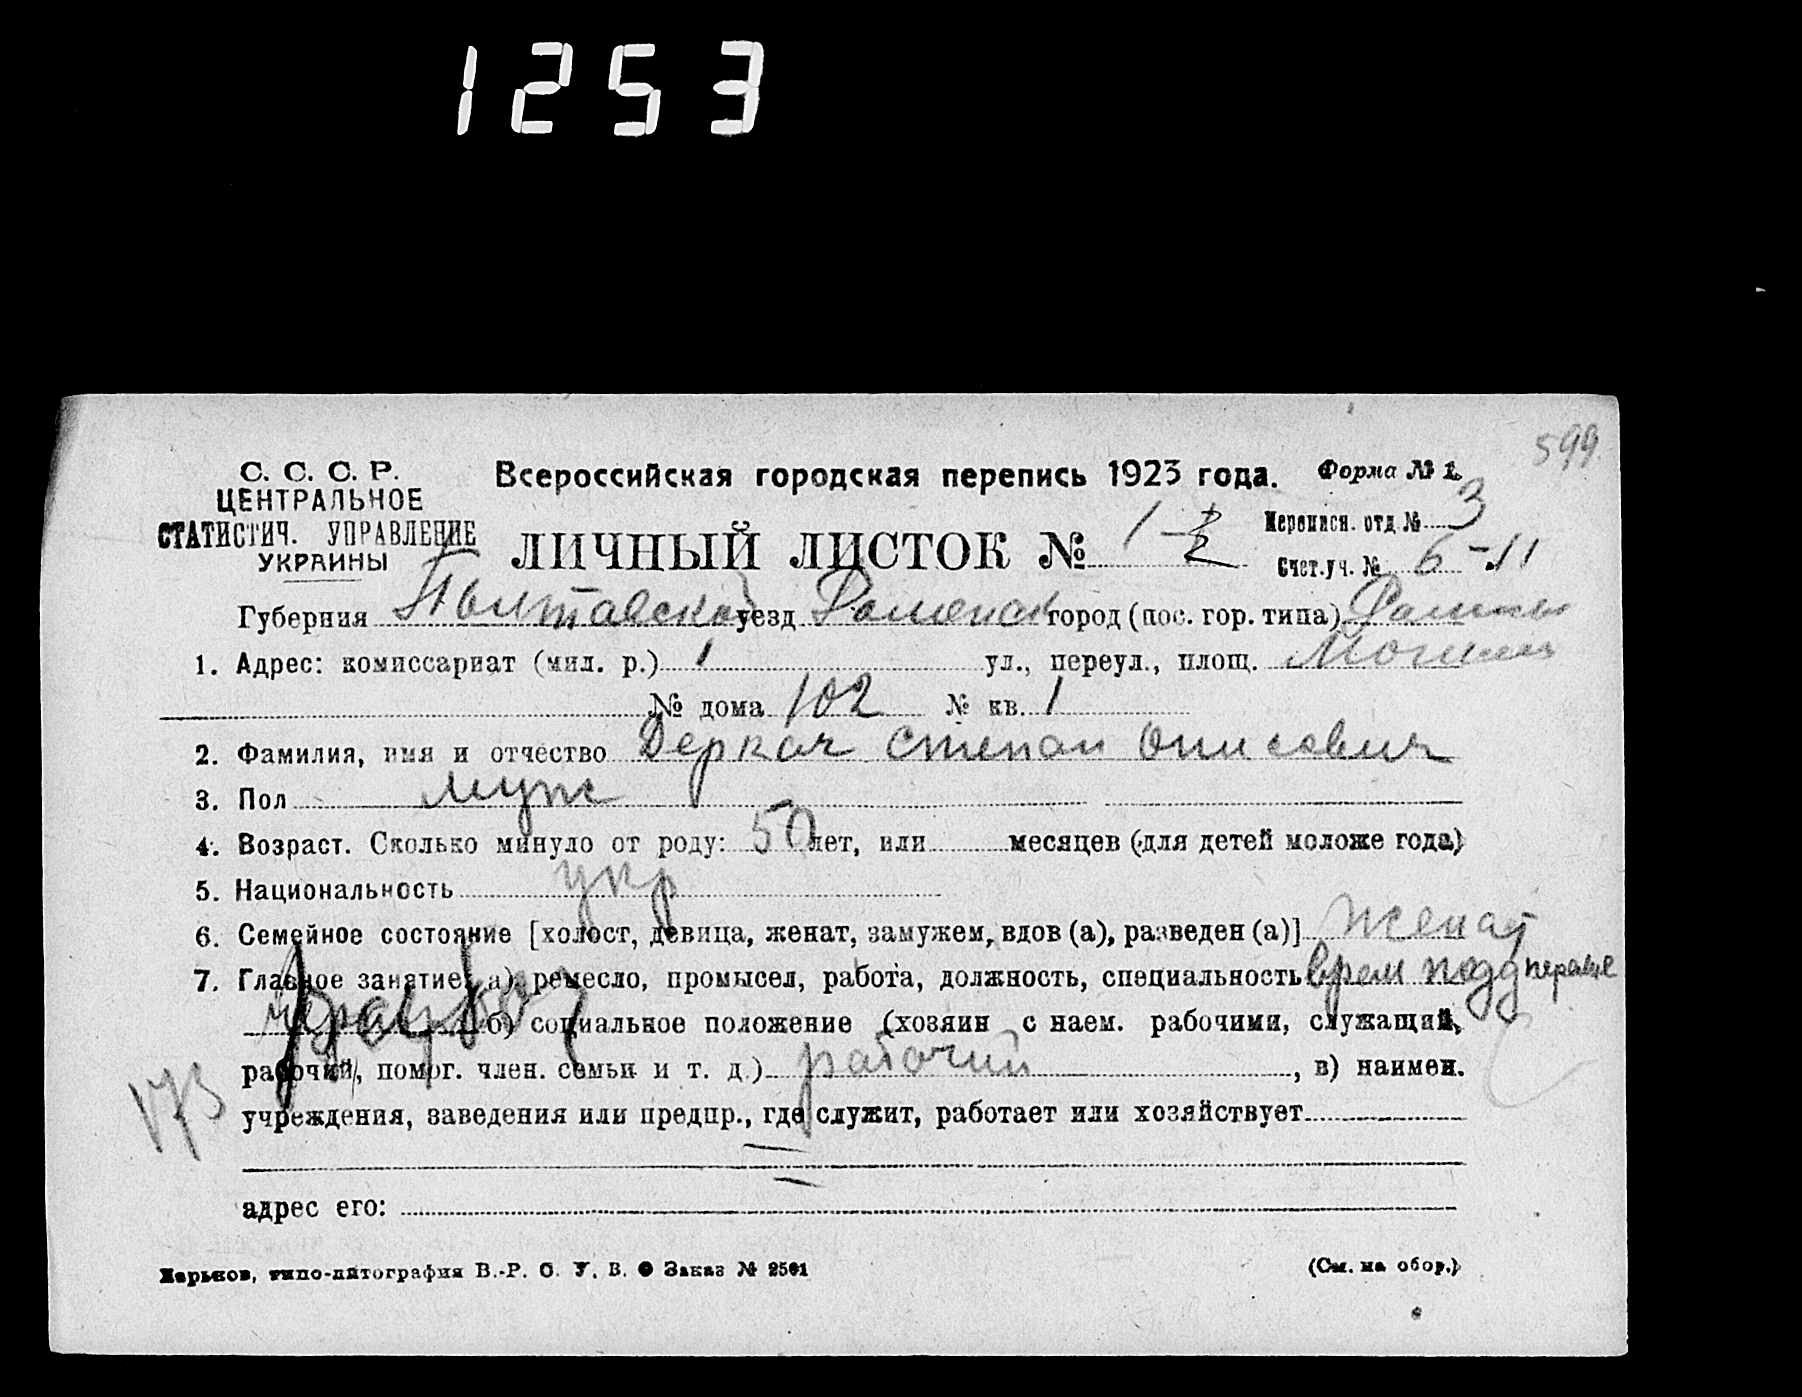 1253
599
С. С. С. Р.
ЦЕНТРАЛЬНОЕ
СТАТИСТИЧ. УПРАВЛЕНИЕ
УКРАИНЫ
Всероссийская городская перепись 1923 года. Форма № 1.
ЛИЧНЫЙ ЛИСТОК № 1-2
Переписн. отд № 3
Счет.уч. № 6-11
Губерния Полтавской уезд Роменск город (пос. гор. типа) Ромны
1. Адрес: комиссариат (мил. р.) 1 ул., переул., площ.
№ дома 102 № кв. 1
2. Фамилия, имя и отчество Деркач Степан Онисович
3. Пол муж
4. Возраст. Сколько минуло от роду: 50 лет, или месяцев (для детей моложе года)
5. Национальность укр
6. Семейное состояние [холост, девица, женат, замужем, вдов (а), разведен (а)] женат
7. Главное занятие: а) ремесло, промысел, работа, должность, специальность врем
б) социальное положение (хозяин с наем. рабочими, служащий,
рабочий, помог. член. семьи и т. д.) рабочий, в) наимен.
173
учреждения, заведения или предпр., где служит, работает или хозяйствует
адрес его:
Харьков, типо-литография В.-Р. С. У. В. Заказ № 2501 (См. на обор.)